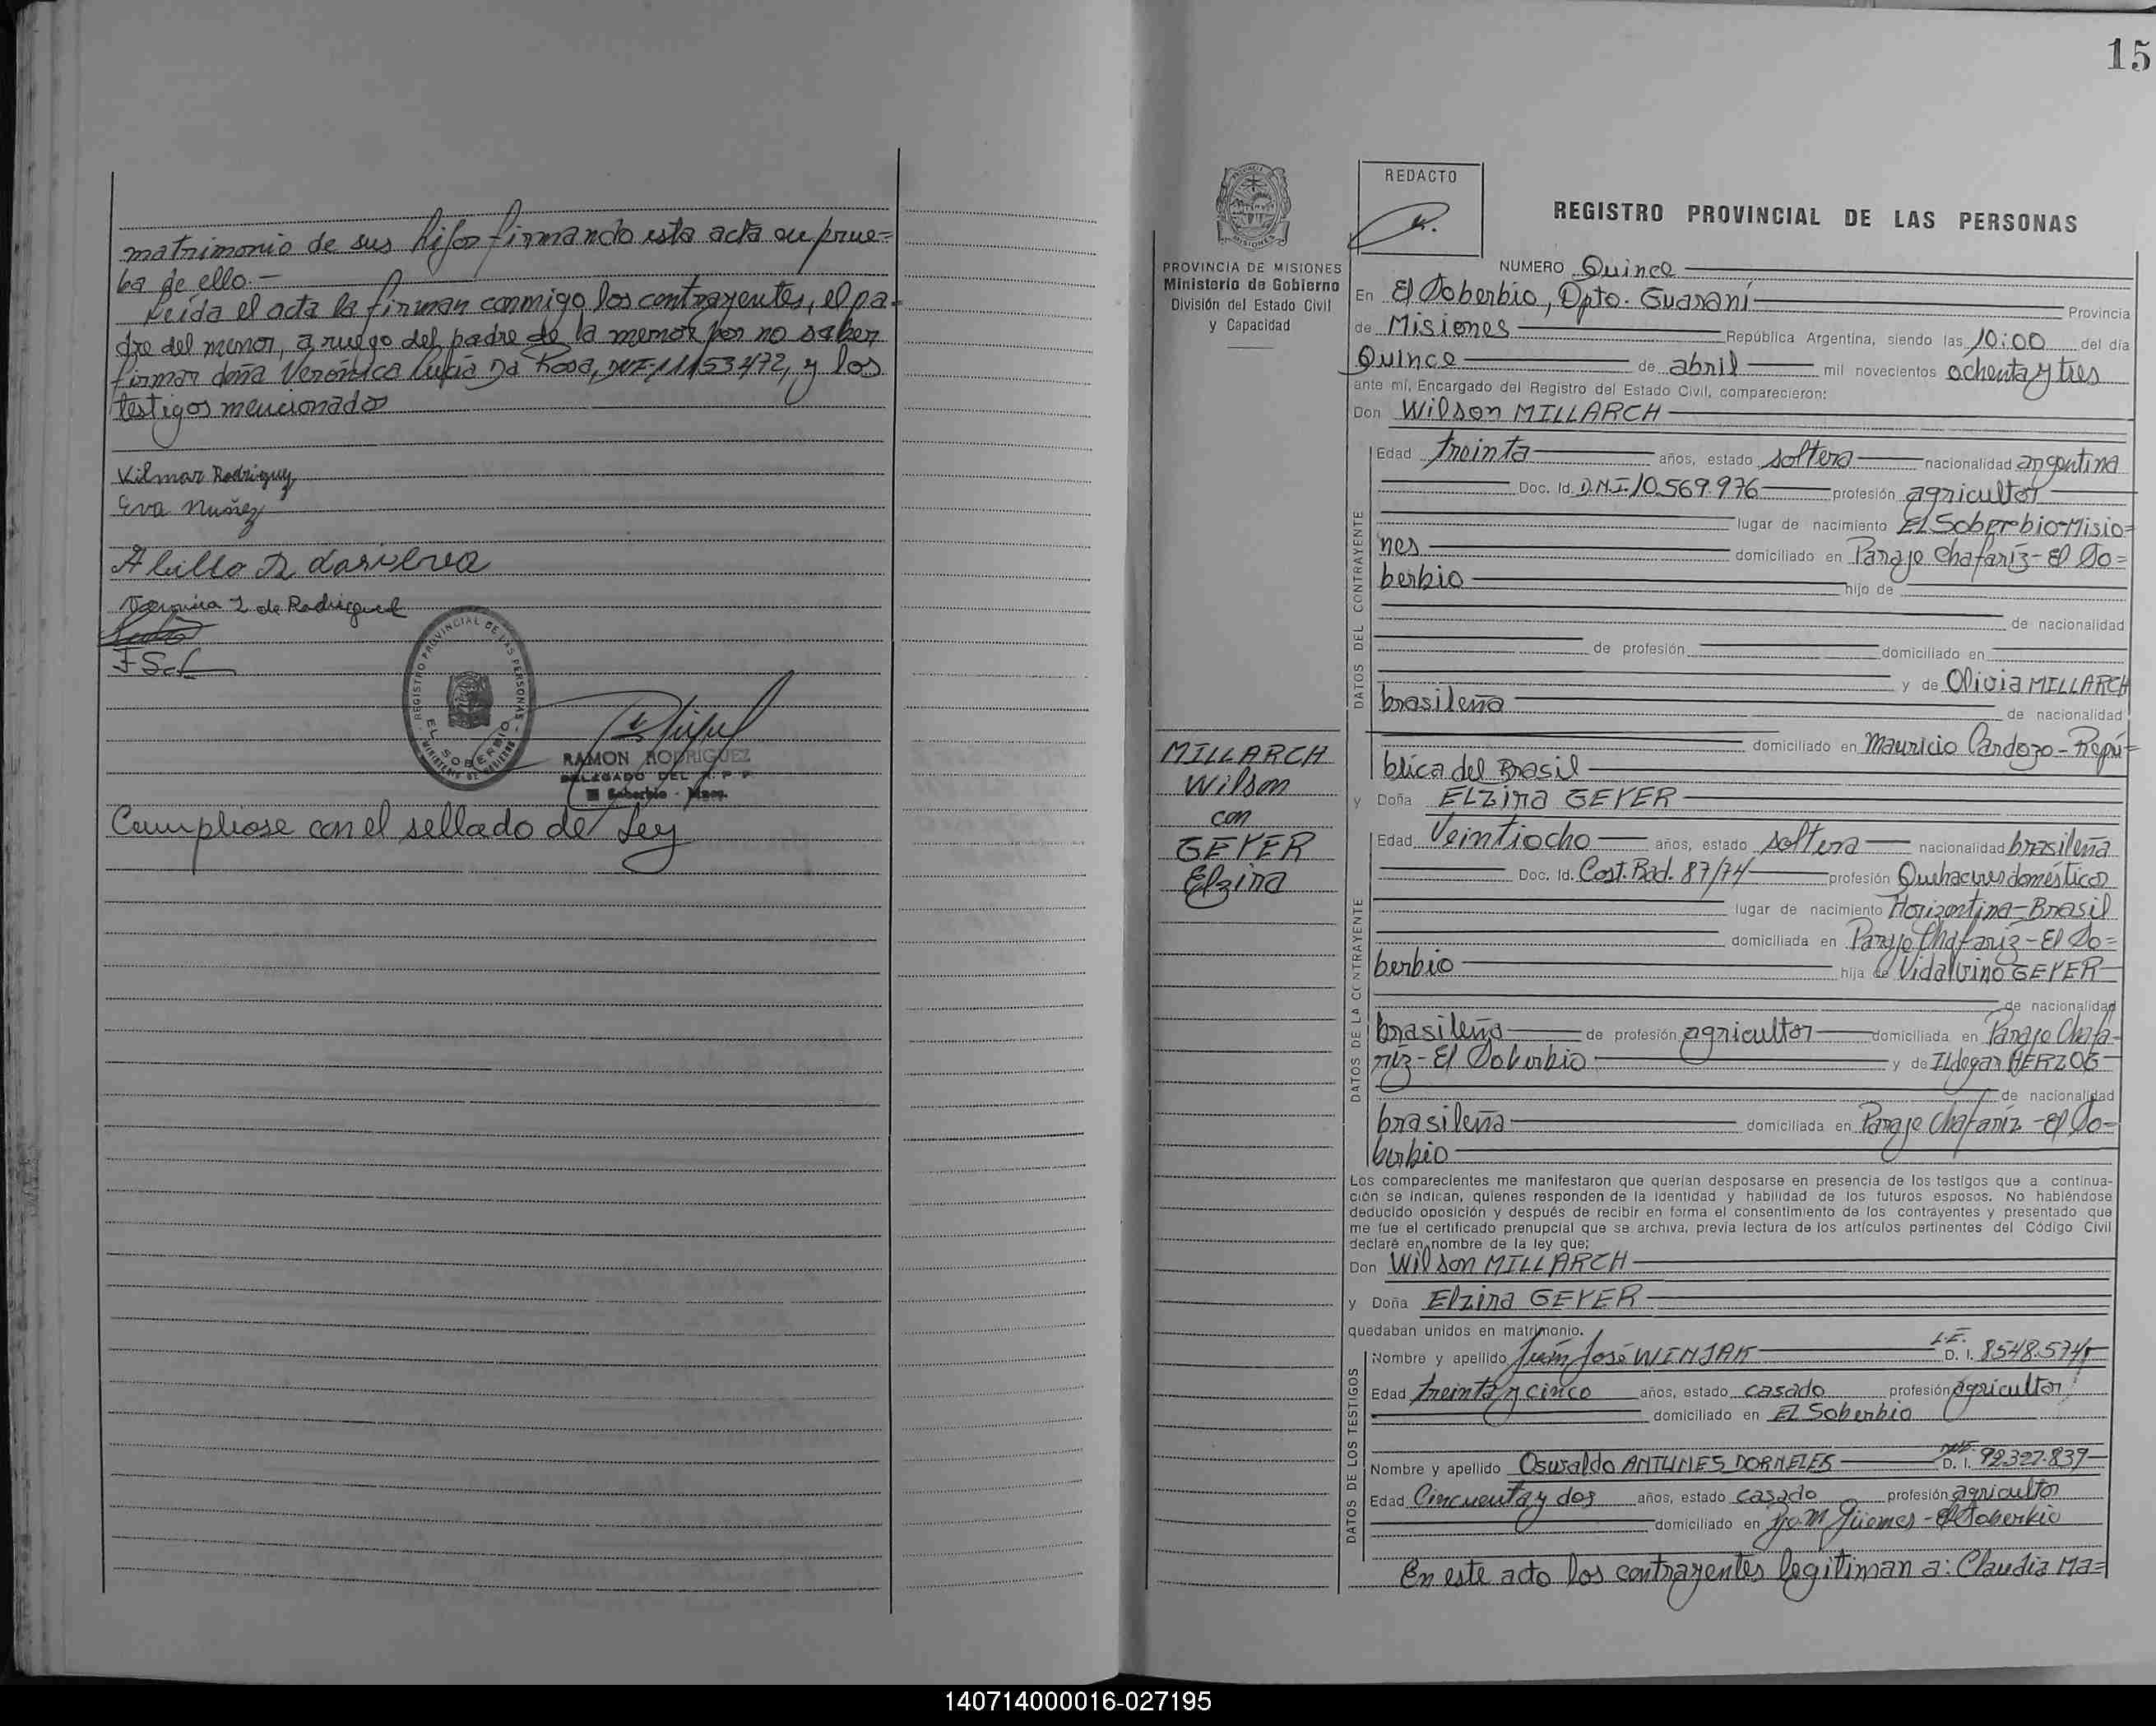 matrimonio de sus hijos firmando esta acta en prue=
ba de ello.-
Leída el acta la firman conmigo los contrayentes, el pa-
dre del menor, a ruego del padre de la menor por no saber
firmar doña Verónica Lucia Da Rosa, 11153472, y los
testigos mencionados
Vilmar Rodriguez
Eva Nuñez
de Rodriguez
REGISTRO PROVINCIAL DE LAS PERSONAS
EL SOBERBIO
MINISTERIO DE GOBIERNO
RAMON RODRIGUEZ
DELEGADO DEL R. P. P.
El Soberbio - Mnes.
Cumpliose con el sellado de Ley
15
REDACTO
PROVINCIA DE MISIONES
Ministerio de Gobierno
División del Estado Civil
y Capacidad
MILLARCH
Wilson
con
GEYER
Elzira
REGISTRO PROVINCIAL DE LAS PERSONAS
NUMERO Quince
En El Soberbio, Dpto. Guaraní Provincia
de Misiones República Argentina, siendo las 10:00 del día
Quince de abril mil novecientos ochenta y tres
ante mí, Encargado del Registro del Estado Civil, comparecieron:
Don Wilson MILLARCH
DATOS DEL CONTRAYENTE
Edad treinta años, estado soltero nacionalidad argentina
Doc. Id. D.N.I. 10.569.976 profesión agricultor
lugar de nacimiento El Soberbio-Misio=
nes domiciliado en Paraje Chafaríz - El So=
berbio hijo de
de nacionalidad
de profesión domiciliado en
y de Olivia MILLARCH
brasileña de nacionalidad
domiciliado en Mauricio Cardozo - Repú=
blica del Brasil
y Doña Elzira GEYER
DATOS DE LA CONTRAYENTE
Edad Veintiocho años, estado soltera nacionalidad brasileña
Doc. Id. Cost. Rad. 87/74 profesión Quehaceres domésticos
lugar de nacimiento Horizontina - Brasil
domiciliada en Paraje Chafaríz - El So=
berbio hija de Vidalvino GEYER
de nacionalidad
brasileña de profesión agricultor domiciliada en Paraje Chafa-
ríz - El Soberbio y de Ildegar HERZOG
de nacionalidad
brasileña domiciliada en Paraje Chafaríz - El So=
berbio
Los comparecientes me manifestaron que querían desposarse en presencia de los testigos que a continua-
ción se indican, quienes responden de la identidad y habilidad de los futuros esposos. No habiéndose
deducido oposición y después de recibir en forma el consentimiento de los contrayentes y presentado que
me fue el certificado prenupcial que se archiva, previa lectura de los artículos pertinentes del Código Civil
declaré en nombre de la ley que:
Don Wilson MILLARCH
y Doña Elzira GEYER
quedaban unidos en matrimonio.
DATOS DE LOS TESTIGOS
Nombre y apellido Juan José WINJAK L.E. D. I. 8548.574
Edad treinta y cinco años, estado casado profesión agricultor
domiciliado en El Soberbio
Nombre y apellido Osvaldo ANTUNES DORNELES D. I. 92.327.839
Edad Cincuenta y dos años, estado casado profesión agricultor
domiciliado en M Güemes - El Soberbio
En este acto los contrayentes legitiman a: Claudia Ma=
140714000016-027195